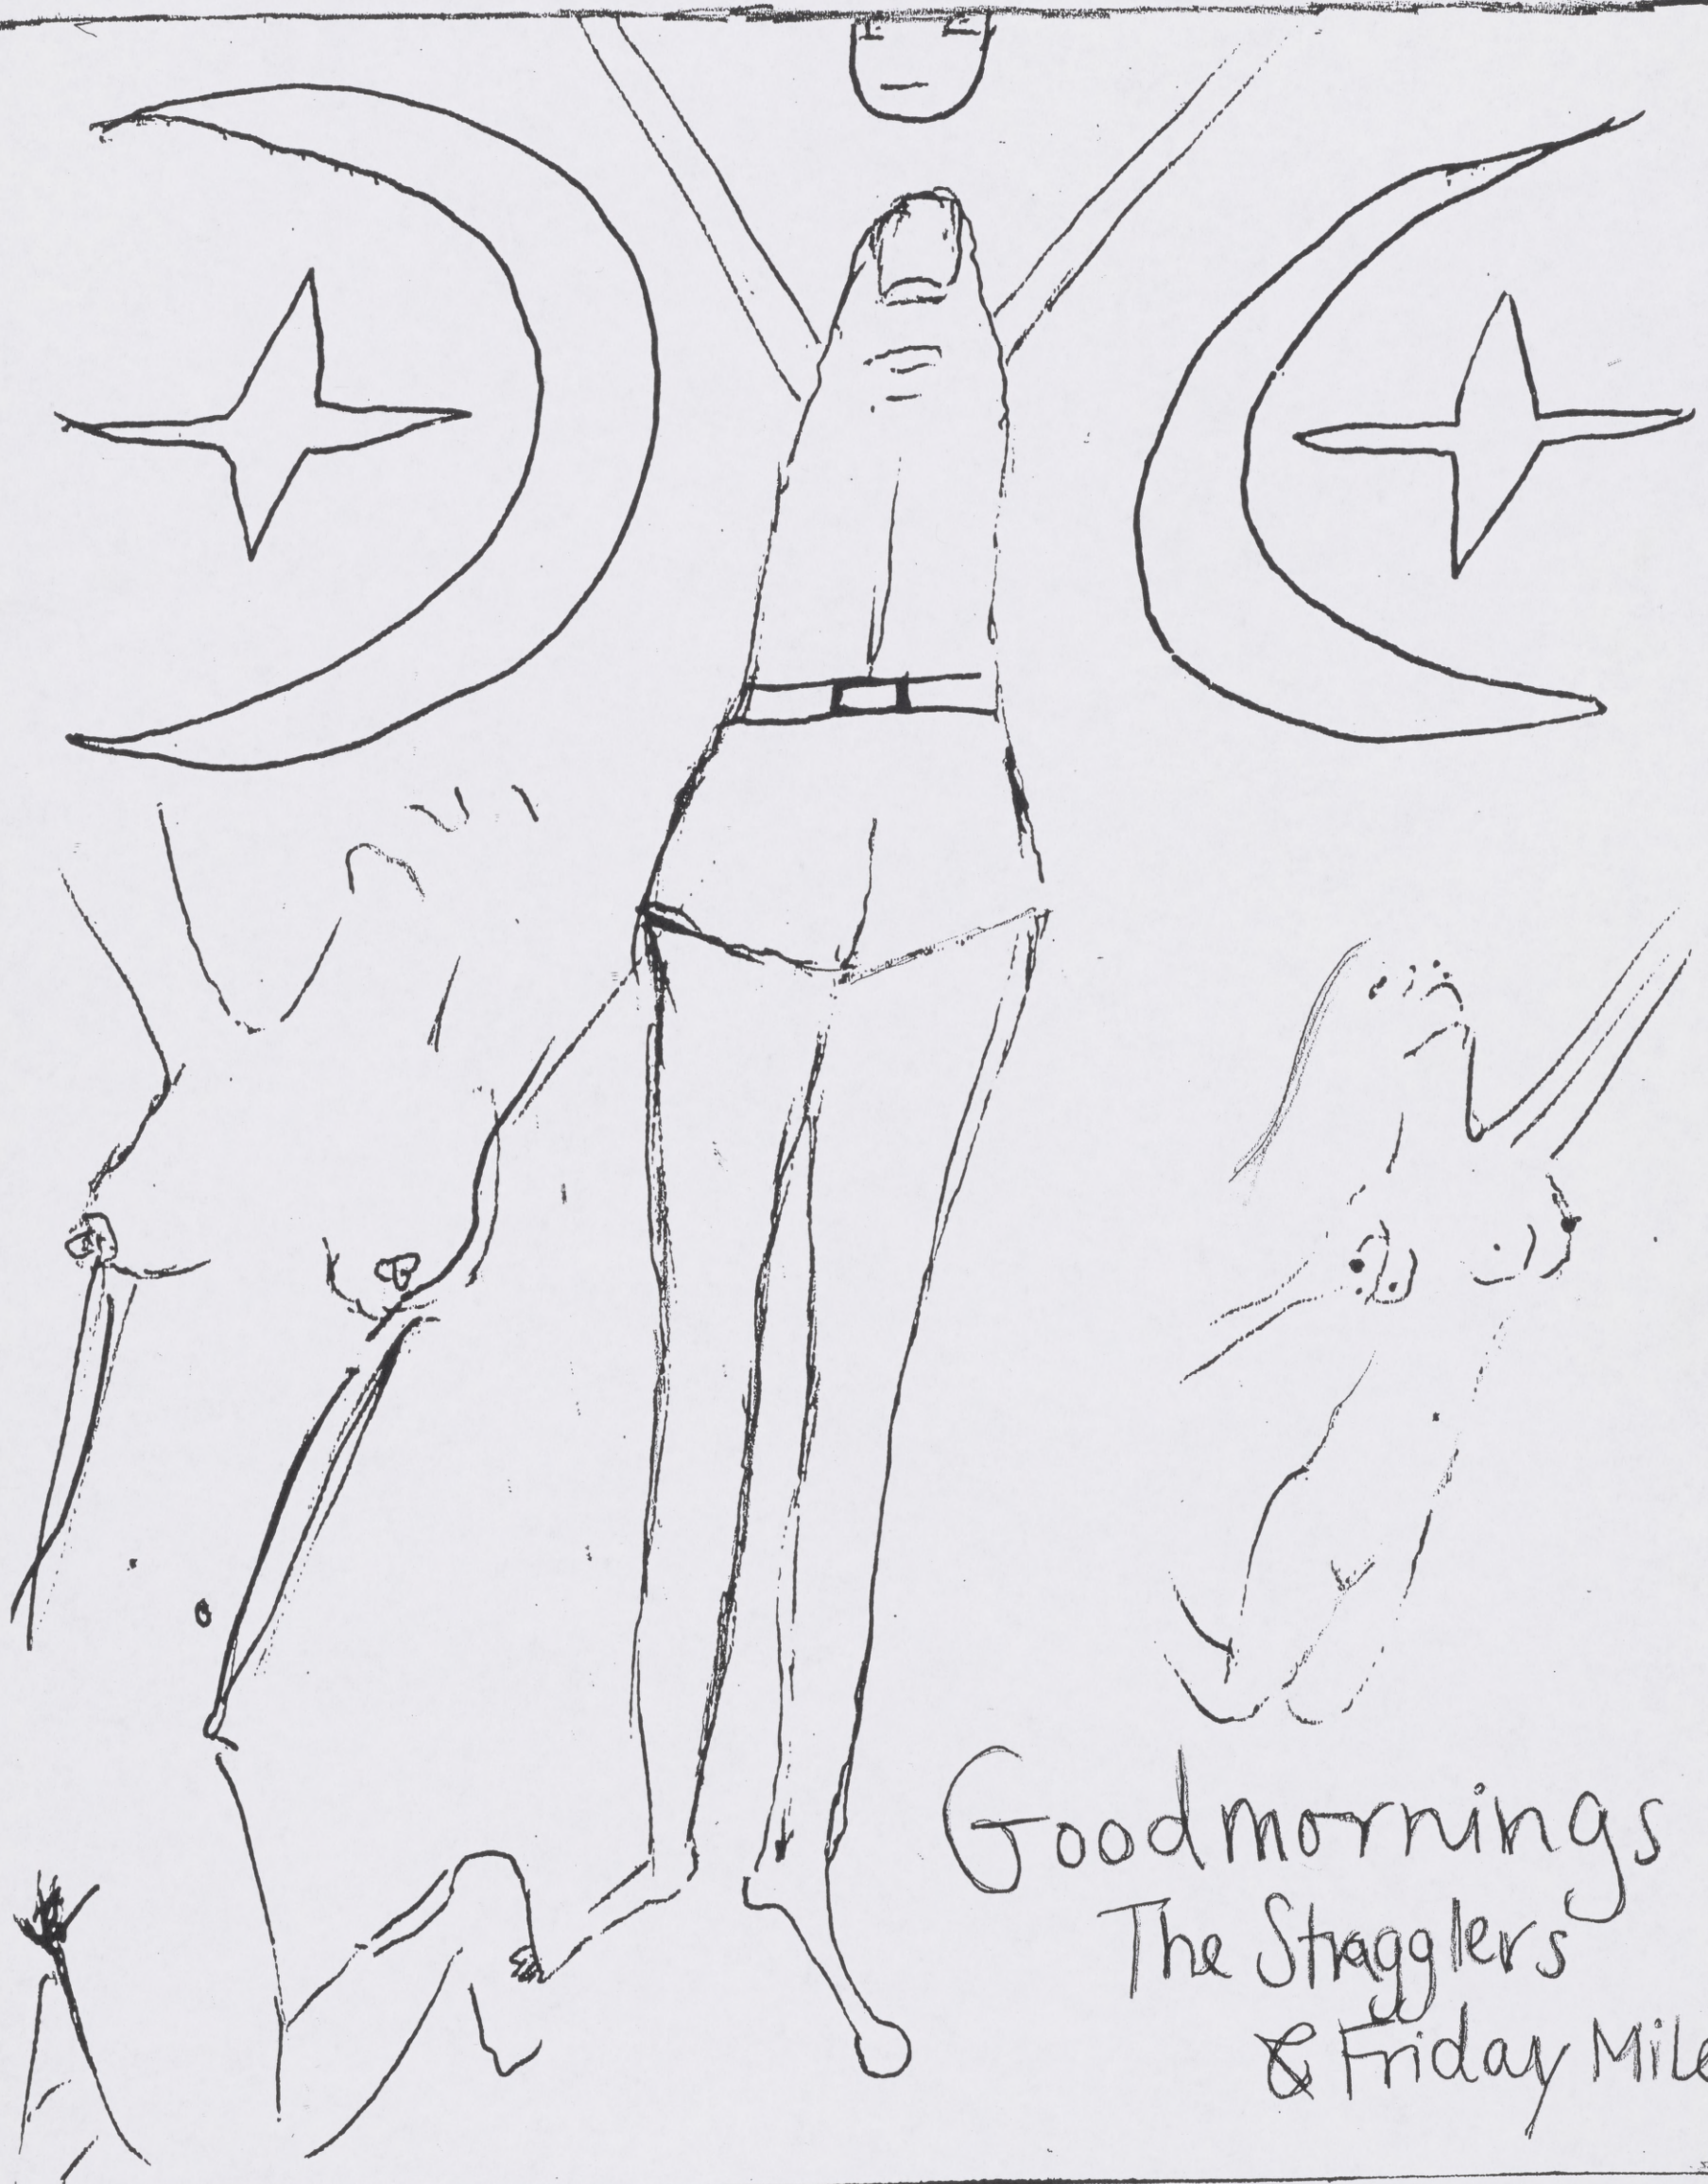 Goodmornings
The Stragglers
& Friday Mile